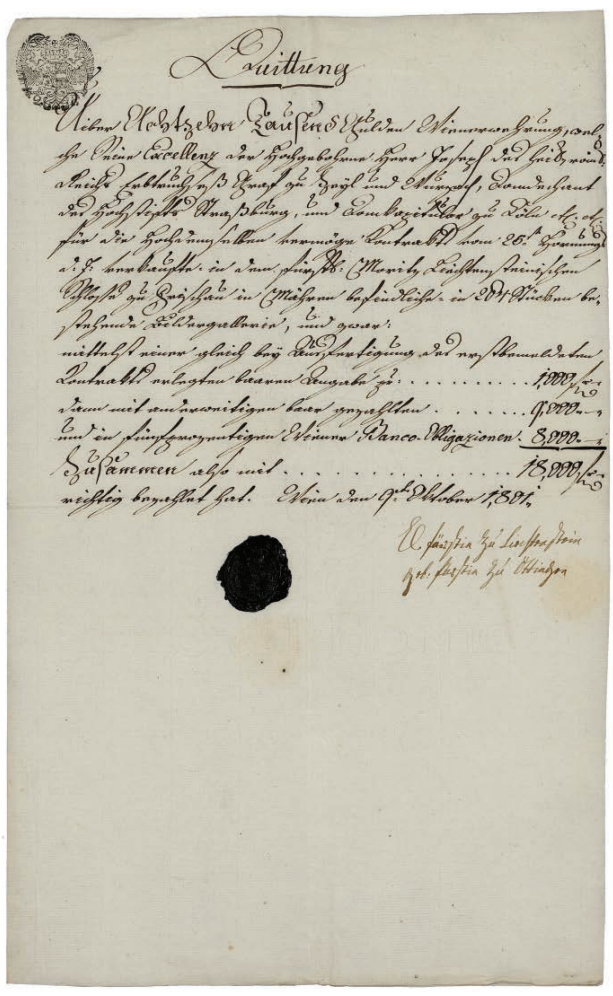 Quittung
Uiber Achtzehn Tausend Gulden Wienerwehrung, wel-
che Seine Excellenz der Hochgebohrne Herr Joseph des Heil: röm:
Reichs Erbtruchseß Graf zu Zeyl und Wurzach, Domdechant
des Hochstifts Straßburg, und Domkapitular zu Köln etc. etc.
für die Hochdemselben vermöge Kontrakts vom 26t Hornungs
d. J. verkaufte in dem fürstl: Moritz Liechtensteinischen
Schlosse zu in Mähren befindliche in 204 Stücken be-
stehende Bildergallerie, und zwar:
mittelst einer gleich bey Ausfertigung des erstbemeldeten
Kontrakts erlegten baaren Angabe pr: . . . . . . . . . . 1,000 fr
dann mit anderweitigen baar gezahlten . . . . . . . 9,000 –
und in fünfprozentigen Wiener Banco Obligazionen. 8,000 –
Zusammen also mit . . . . . . . . . . . . . . . 18,000 fr
richtig bezahlet hat. Wien den 9ten Oktober 1,801.
fürstin zu Liechtenstein
geb: fürstin zu Öttingen